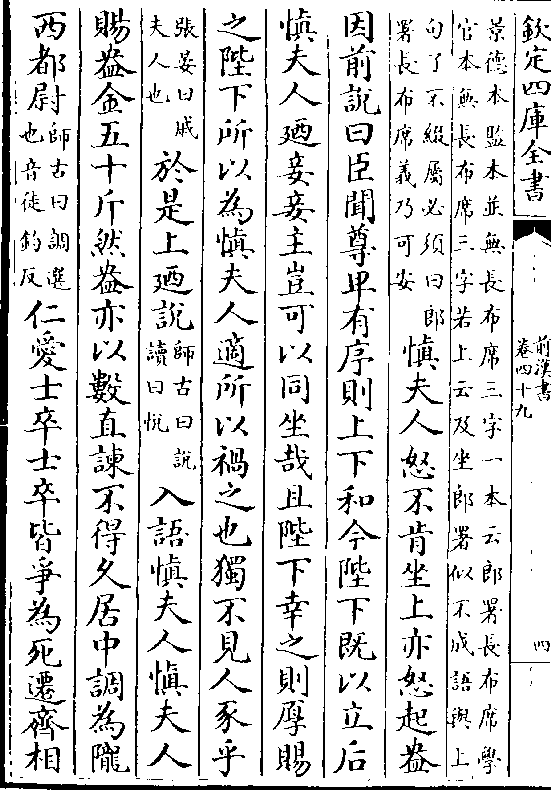 欽定四庫全書
前漢書
卷四十九
四
景徳本監本並無長布席三字一本云郎署長布席學
官本無長布席三字若上云及坐郎署似不成語與上
句了不綴屬必須曰郎
署長布席義乃可安
慎夫人怒不肯坐上亦怒起盎
因前說曰臣聞尊卑有序則上下和今陛下既以立后
慎夫人廼妾妾主豈可以同坐哉且陛下幸之則厚賜
之陛下所以為慎夫人適所以禍之也獨不見人豕乎
張晏曰戚
夫人也
於是上廼說
師古曰説
讀曰悅
入語慎夫人慎夫人
賜盎金五十斤然盎亦以數直諫不得久居中調為隴
西都尉
師古曰調選
也音徒釣反
仁愛士卒士卒皆爭為死遷齊相